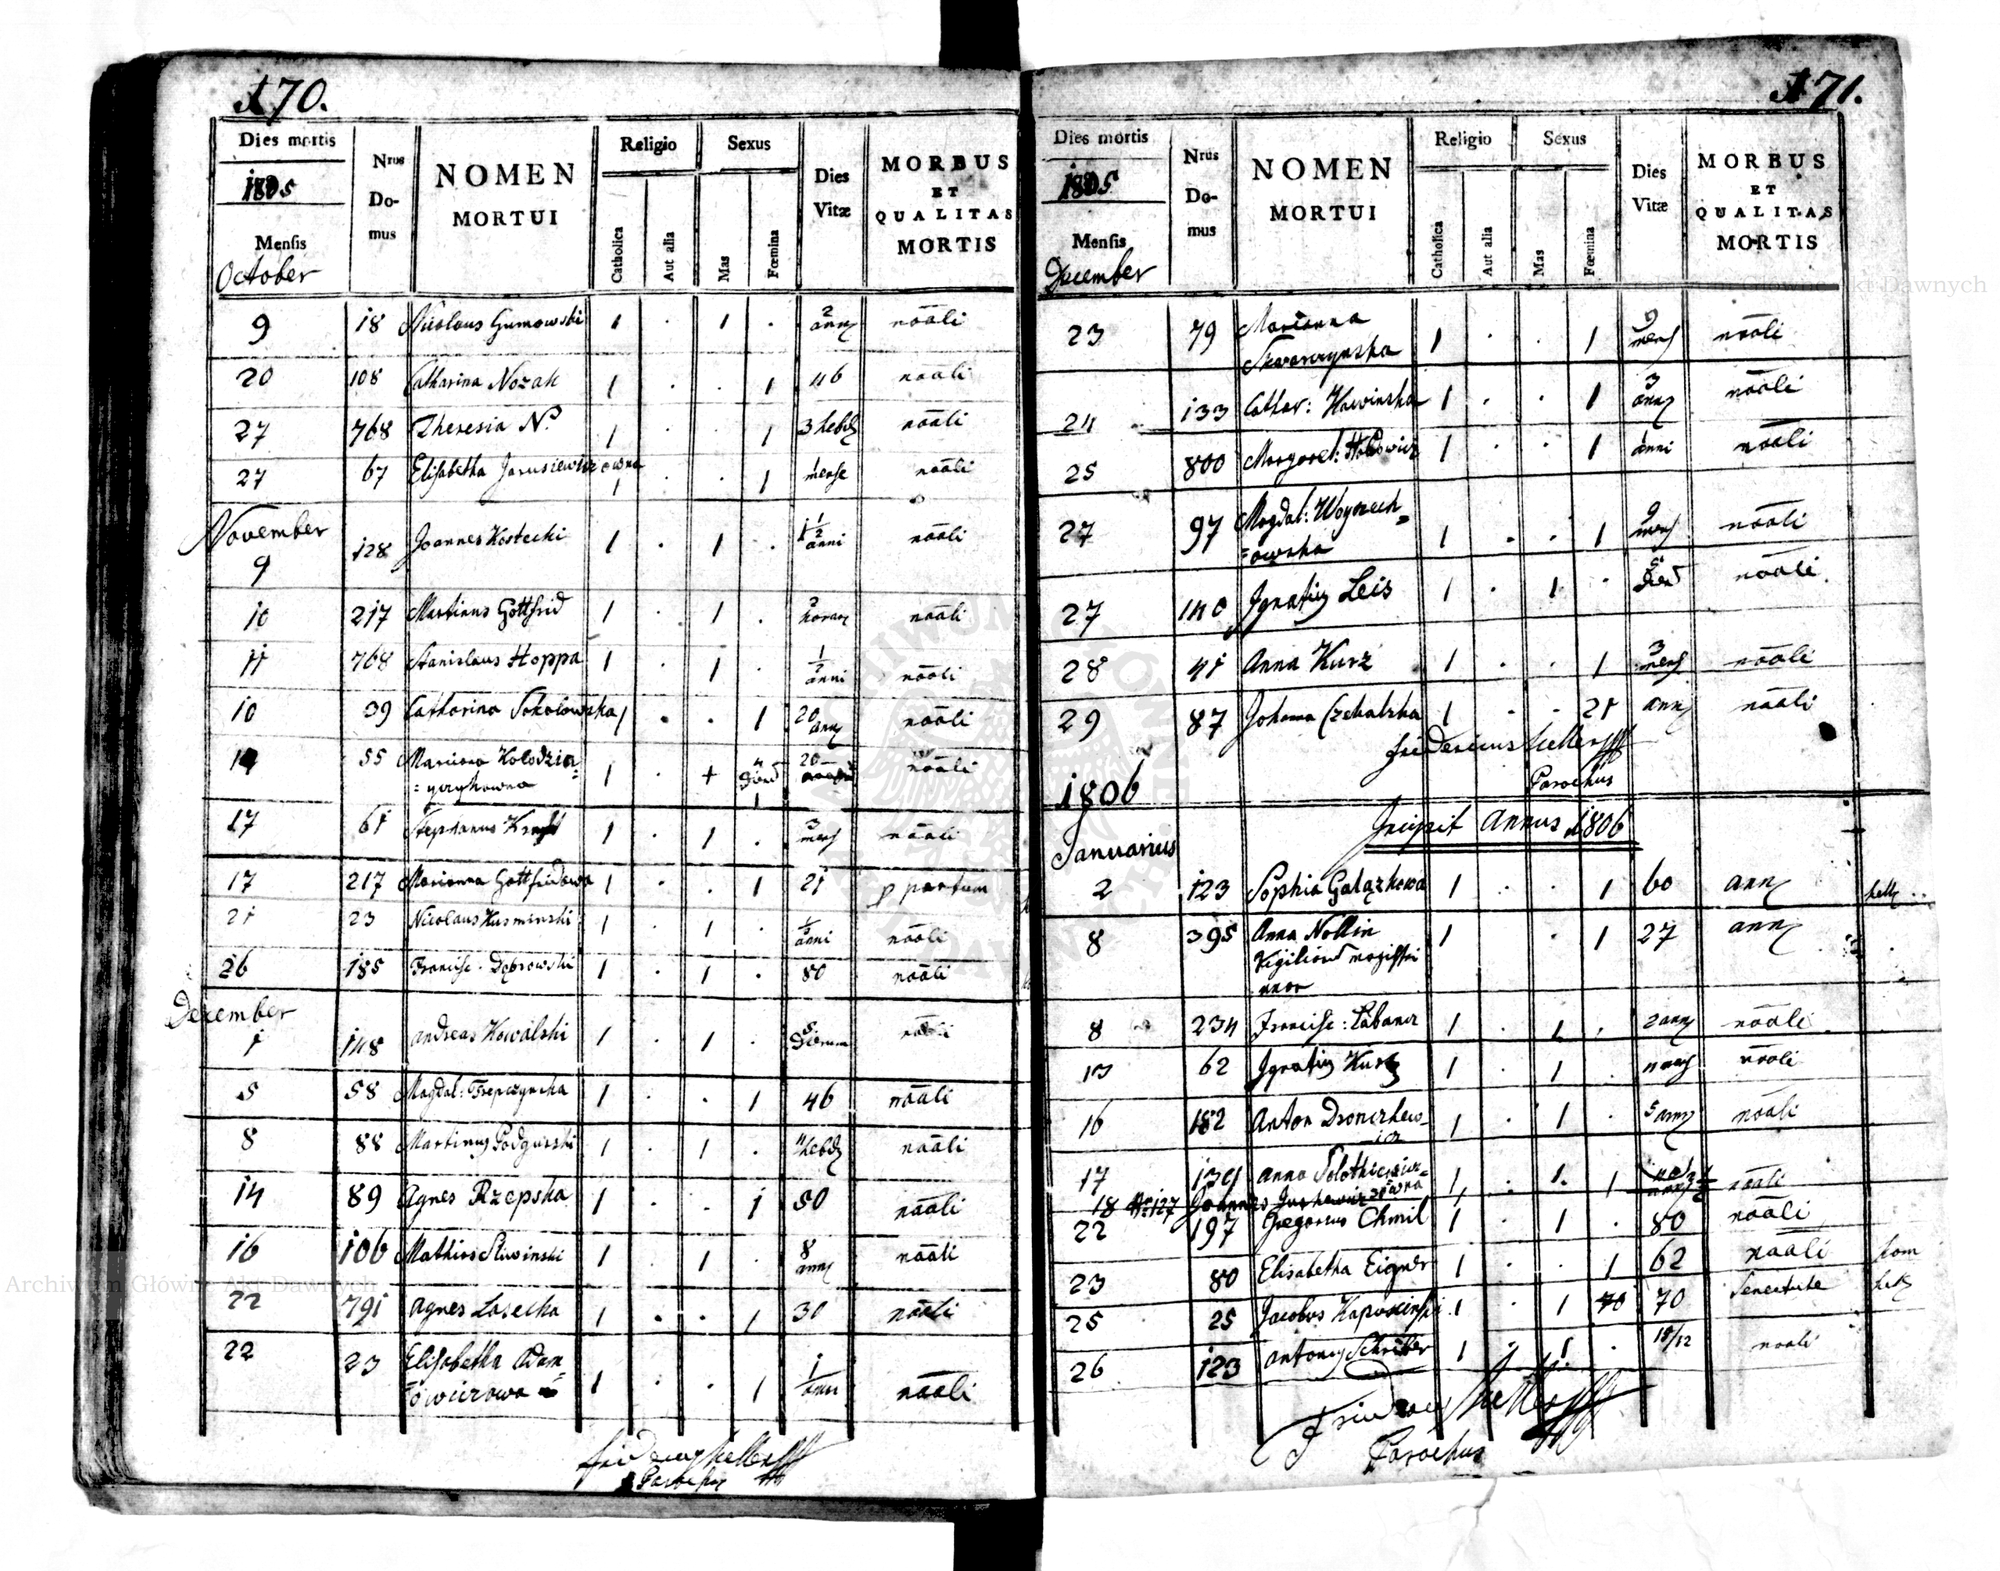 170.
Dies mortis
1805
Mensis
October
Nrus Domus
NOMEN MORTUI
Religio
Catholica
Aut alia
Sexus
Mas
Fœmina
Dies Vitæ
MORBUS ET QUALITAS MORTIS
9 18 Nicolaus Gumowski 1 . 1 . 2 ann nāāli
20 108 Catharina Nozak 1 . . 1 46 nāāli
27 768 Theresia N. 1 . . 1 3 hebd nāāli
27 67 Elisabetha Jarusiewiczowna 1 . . 1 1 mense nāāli
November
9 128 Joannes Kostecki 1 . 1 . 1 1/2 anni nāāli
10 217 Martinus Gottfrid 1 1 . 2 horar nāāli
11 768 Stanislaus Hoppa 1 . 1 . 1/2 anni nāāli
10 39 Catharina Sokolowska 1 . . 1 20 ann nāāli
14 55 Marianna Kolodzie=
=yczykowna 1 . + 1 nāāli
17 61 Stephanus 1 . 1 . 3 mens nāāli
17 217 Marianna Gottfridowa 1 . . 1 21 p partum
21 23 Nicolaus Kusminski 1 . 1 . 1/2 anni nāāli
26 185 Francisc. Dąbrowski 1 . 1 . 80 nāāli
December
1 148 Andreas Kowalski 1 . 1 . 5 Dierum nāāli
5 58 Magdal: Trepczyncka 1 . . 1 46 nāāli
8 88 Martinus Podgurski 1 . 1 . 4 hebd nāāli
14 89 Agnes Rzepska 1 . . 1 50 nāāli
16 106 Mathias Sliwinski 1 . 1 . 8 ann nāāli
22 791 Agnes Lasecka 1 . . 1 30 nāāli
22 23 Elisabetha Adam=
=owiczowa 1 . . 1 1/ anni nāāli
Parochus
171.
Dies mortis
1805
Mensis
December
Nrus Domus
NOMEN MORTUI
Religio
Catholica
Aut alia
Sexus
Mas
Fœmina
Dies Vitæ
MORBUS ET QUALITAS MORTIS
23 79 Marianna
Skwarczynska 1 . . 1 9 mens nāāli
24 133 Cathar: Kawinska 1 . . 1 3 ann nāāli
25 800 Margaret: 1 . . 1 1 anni nāāli
27 97 Magdal: Woyciech=
=owska 1 . . 1 9 mens nāāli
27 140 Ignatius Leis 1 . 1 . 5 Dierum nāāli
28 41 Anna Kurz 1 . . 1 3 mens nāāli
29 87 Johanna Czekalska 1 . . 21 ann nāāli
Fridericus Keller
Parochus
1806
Incipit Annus 1806
Januarius
2 123 Sophia Galązkowa 1 . . 1 60 ann
8 395 Anna Nollin 1 . 1 27 ann
Vigiliarum magistri
uxor
8 234 Francisc: Labancz 1 . 1 . 2 ann nāāli
13 62 Ignatius Kurz 1 . 1 . mens nāāli
16 182 Anton Dronczkew
icz 1 . 1 . 5 ann nāāli
17 139 Anna 1 . 1. nāāli
18 Nr 127 Joannes 1
22 197 Gregorius Chmil 1 . 1 . 80 nāāli
23 80 Elisabetha Eigner 1 . . 1 62 nāāli
25 25 Jacobus Kapuscinski 1 . 1 70 70 Senectute
26 123 Antonius Schreiber 1 . 1 . 15/12 nāāli
Parochus
Archiwum Główne Akt Dawnych
Archiwum Główne Akt Dawnych
ARCHIWUM GŁÓWNE AKT DAWNYCH